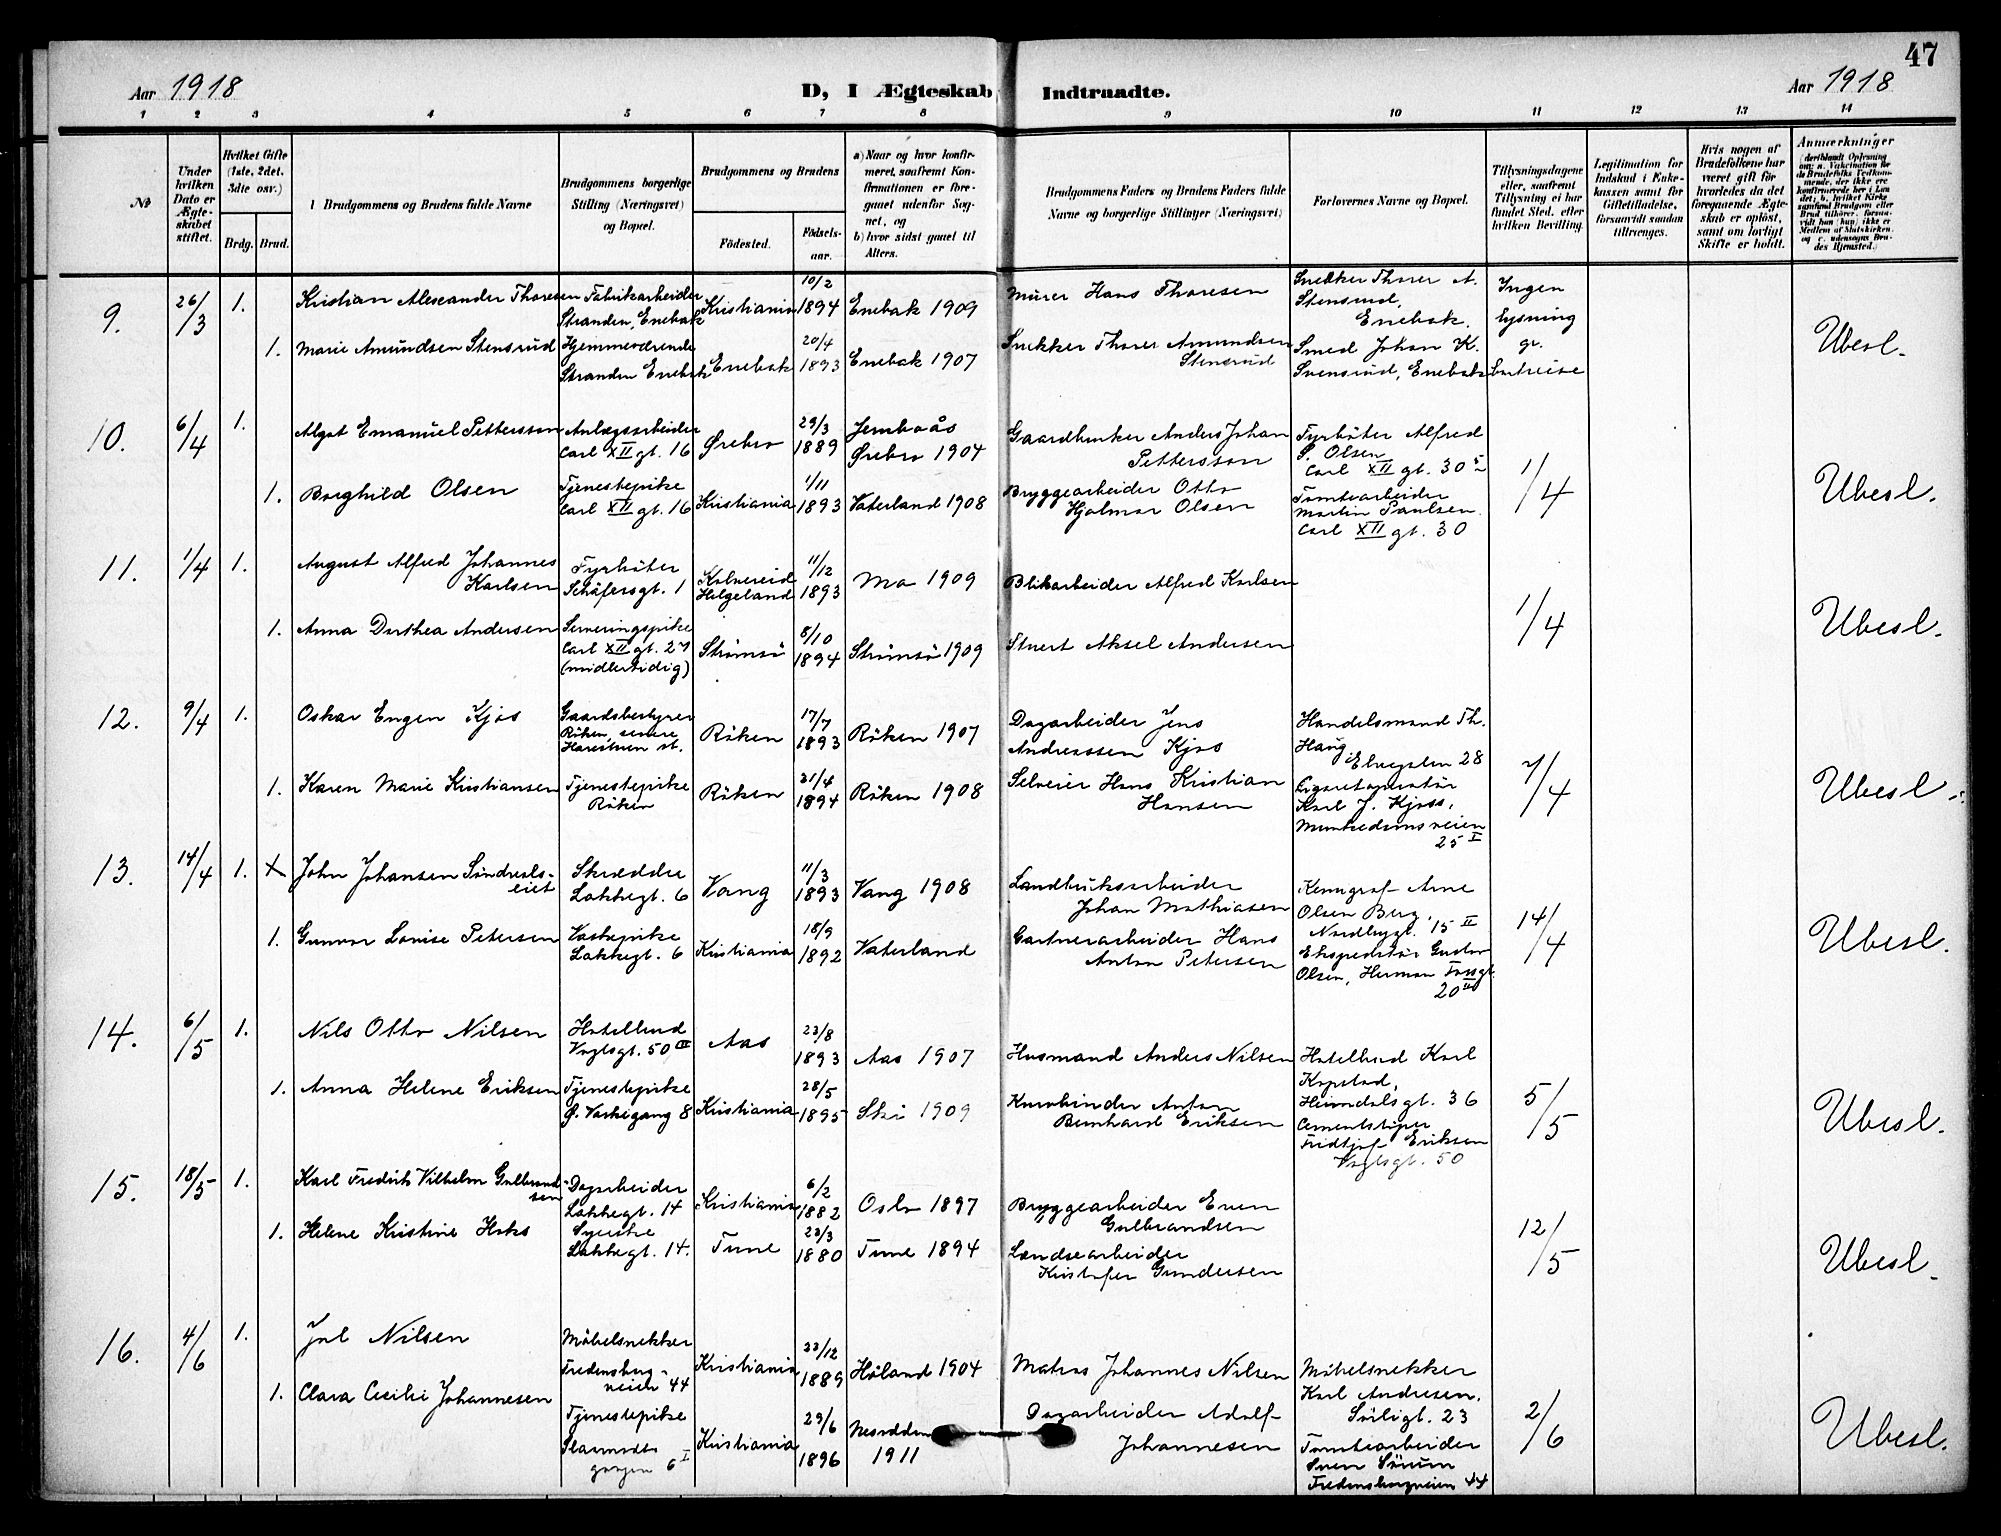 47
Aar 1918
D, I Ægteskab Indtraadte.
Aar 1918
1 2 3 4 5 6 7 8 9 10 11 12 13 14
№
Under hvilken Dato er Ægteskabet stiftet.
Hvilket Gifte (1ste, 2det, 3die osv.)
Brdg. Brud.
Brudgommens og Brudens fulde Navne
Brudgommens borgerlige Stilling (Næringsvei) og Bopæl.
Brudgommens og Brudens
Fødested.
Fødsels-aar.
a) Naar og hvor konfirmeret, saafremt Konfirmationen er foregaaet udenfor Sognet, og
b) hvor sidst gaaet til Alters.
Brudgommens Faders og Brudens Faders fulde Navne og borgerlige Stillinger (Næringsvei)
Forlovernes Navne og Bopæl.
Tillysningsdagene eller, saafremt Tillysning ei har fundet Sted, efter hvilken Bevilling.
Legitimation for Indskud i Enkekassen samt for Giftetilladelse, forsaavidt saadan tiltrænges.
Hvis nogen af Brudefolkene har været gift før hvorledes da det foregaaende Ægteskab er opløst, samt om lovligt Skifte er holdt.
Anmærkninger
9. 26/3 1. Kristian Alexander Thoresen Fabrikarbeider Stranden, Enebak Kristiania 10/2 1894 Enebak 1909 Murer Hans Thoresen Snekker Thorer A. Stensrud, Enebak. Ingen lysning gr. bortreise
1. Marie Amundsen Stensrud Hjemmeværende Stranden Enebak Enebak 20/4 1893 Enebak 1907 Snekker Thorer Amundsen Stensrud Smed Johan K. Svensrud, Enebak Ubesl.
10. 6/4 1. Algot Emanuel Pettersson Anlægsarbeider Carl XII gt. 16 Ørebro 29/3 1889 Ørebro 1904 Gaardbruker Anders Johan Pettersson Fyrbøter Alfred Olsen Carl XII gt. 30 1/4
1. Borghild Olsen Tjenestepike Carl XII gt. 16 Kristiania 1/11 1893 Vaterland 1908 Bryggearbeider Otto Hjalmar Olsen Tomtearbeider Martin Paulsen Carl XII gt. 30 Ubesl.
11. 1/4 1. August Alfred Johannes Karlsen Fyrbøter Schäfersgt. 1 Kolvereid Helgeland 11/12 1893 Mo 1909 Blikarbeider Alfred Karlsen 1/4
1. Anna Dorthea Andersen Serveringspike Carl XII gt. 27 (midlertidig) Strømsø 8/10 1894 Strømsø 1909 Stuert Aksel Andersen Ubesl.
12. 9/4 1. Oskar Engen Kjos Gaardsbestyrer Røken, senere Harestuen st. Røken 17/7 1893 Røken 1907 Dagarbeider Jens Andreassen Kjos Handelsmand Th. Haug Elvegaten 28 7/4
1. Karen Marie Kristiansen Tjenestepike Røken Røken 21/4 1894 Røken 1908 Selveier Hans Kristian Hansen Karl J. Kjoss, Munkedamsveien 25 I Ubesl.
13. 14/4 1. John Johansen Søndreals-eiet Skrædder Lakkegt. 6 Vang 11/3 1893 Vang 1908 Landbruksarbeider Johan Mathiasen Arne Olsen Berg, Nordbygt. 15 II 14/4
1. Gunvor Lovise Petersen Vaskepike Lakkegt. 6 Kristiania 18/9 1892 Vaterland Gartnerarbeider Hans Anton Petersen Ekspeditør Gustav Olsen, Herman Fossgt. 20 Ubesl.
14. 6/5 1. Nils Otto Nilsen Hotelbud Vogtsgt. 50 III Aas 23/8 1893 Aas 1907 Husmand Anders Nilsen Hotelbud Karl Kopstad, Heimdalsgt. 36 5/5
1. Anna Helene Eriksen Tjenestepike Ø. Vaskegang 8 Kristiania 28/5 1895 Ski 1909 Kurvbinder Anton Bernhard Eriksen Cementstøper Fridtjof Eriksen Vogtsgt. 50 Ubesl.
15. 18/5 1. Karl Fredrik Vilhelm Gulbrandsen Dagarbeider Lakkegt. 14 Kristiania 6/2 1882 Oslo 1897 Bryggearbeider Even Gulbrandsen 12/5
1. Helene Kristine Syerske Lakkegt. 14. Tune 23/3 1880 Tune 1894 Lændsearbeider Kristofer Gundersen Ubesl.
16. 4/6 1. Jul Nilsen Møbelsnekker Fredensborg-veien 44 Kristiania 23/12 1889 Høland 1904 Matros Johannes Nilsen Møbelsnekker Karl Andresen, Sørligt. 23 2/6
1. Clara Cecilie Johannesen Tjenestepike Kristiania 29/6 1896 Nesodden 1911 Dagarbeider Adolf Johannesen Tomtearbeider Sven Sørum Fredensborgveien 44 Ubesl.